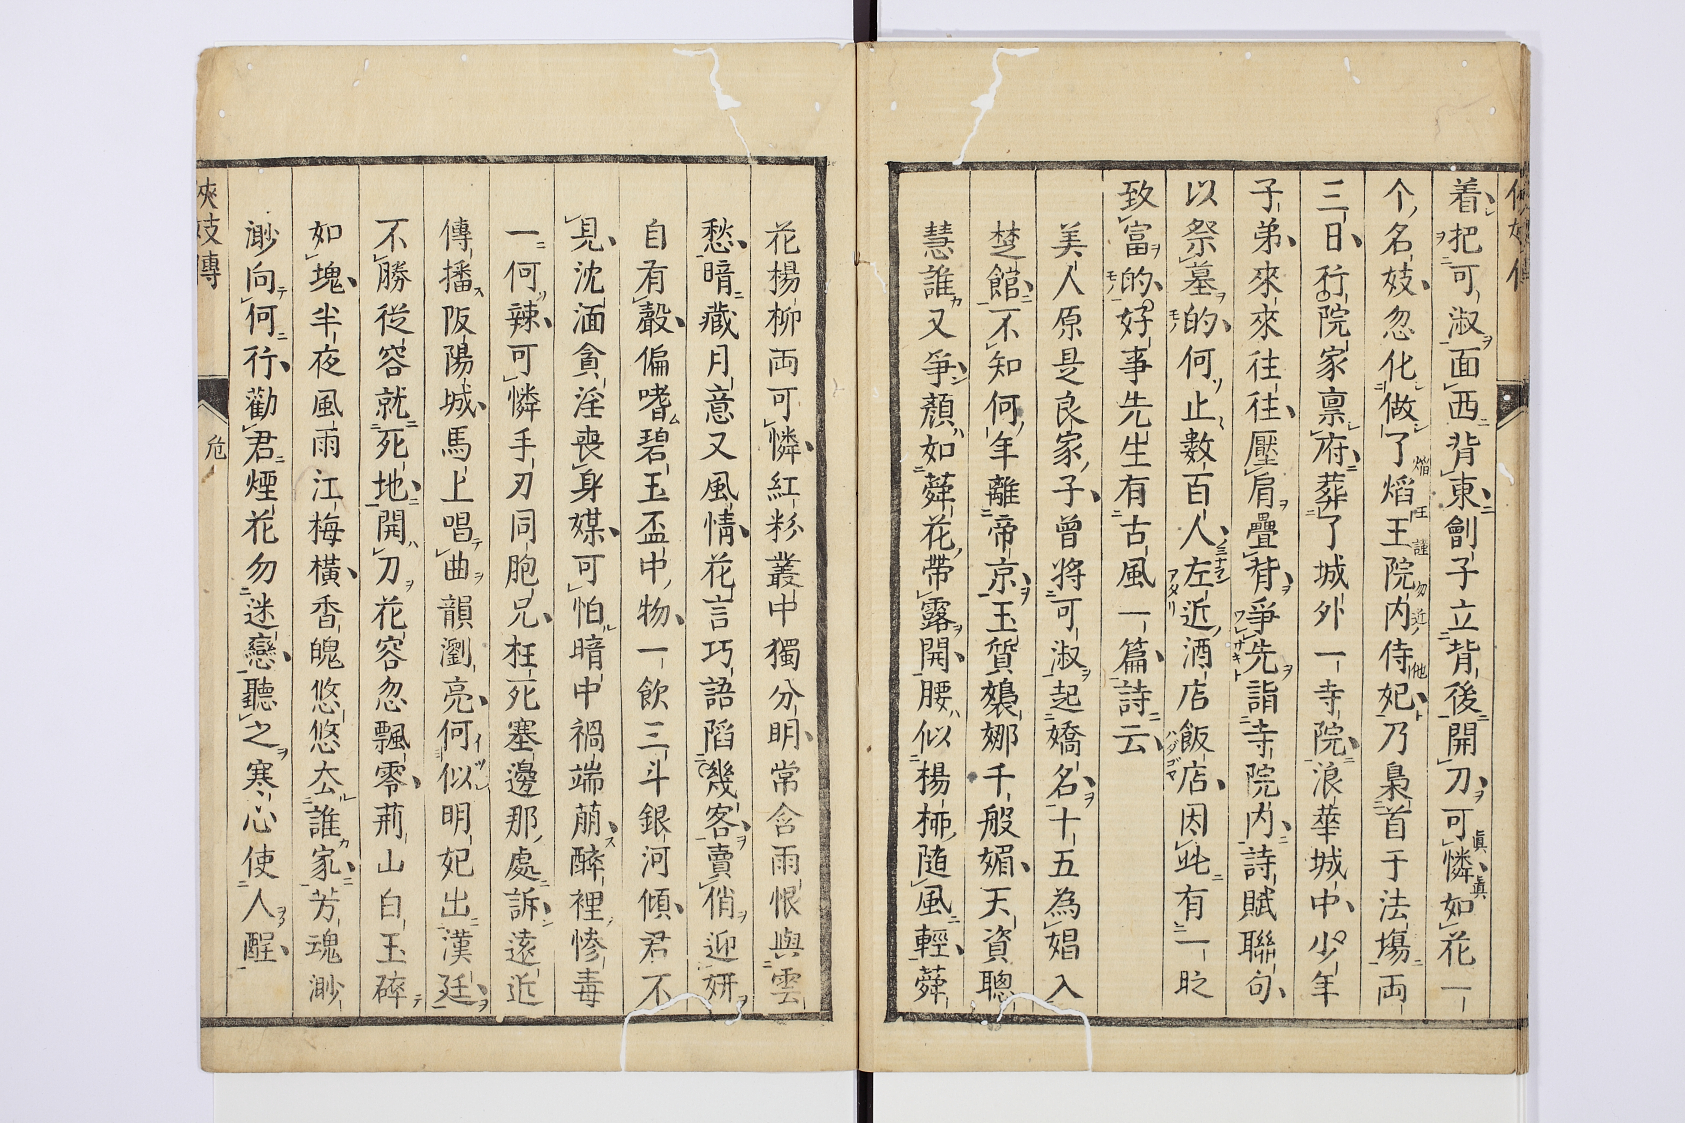 着把可淑面西背東劊子立背後開刀可憐如花一
个名妓忽化做了焰王院内侍妃乃梟首于法場両
三日行院家禀府葬了城外一寺院浪華城中少年
子弟來來徃徃壓肩疊背爭先詣寺院内詩賦聯句
以祭墓的何止數百人左近酒店飯店因此有一
致富的好事先生有古風一篇詩云
美人原是良家子曾將可淑起嬌名十五為娼入
楚館不知何年離帝京玉質裊娜千般媚天資聰
慧誰又爭顏如蕣花帶露開腰似楊柳随風輕蕣
花楊柳両可憐紅粉叢中獨分明常含雨恨與雲
愁暗藏月意又風情花言巧語陷幾客賣俏迎妍
自有彀偏嗜碧玉盃中物一飲三斗銀河傾君不
見沈湎貪淫喪身媒可怕暗中禍端萠醉裡惨毒
一何辣可憐手刃同胞兄枉死塞邊那處訴遠近
傳播阪陽城馬上唱曲韻瀏亮何似明妃出漢廷
不勝從容就死地開刀花容忽飄零荊山白玉碎
如塊半夜風雨江梅横香魄悠悠厺誰家芳魂渺
渺向何行勸君煙花勿迷戀聽之寒心使人醒
俠妓傳
危